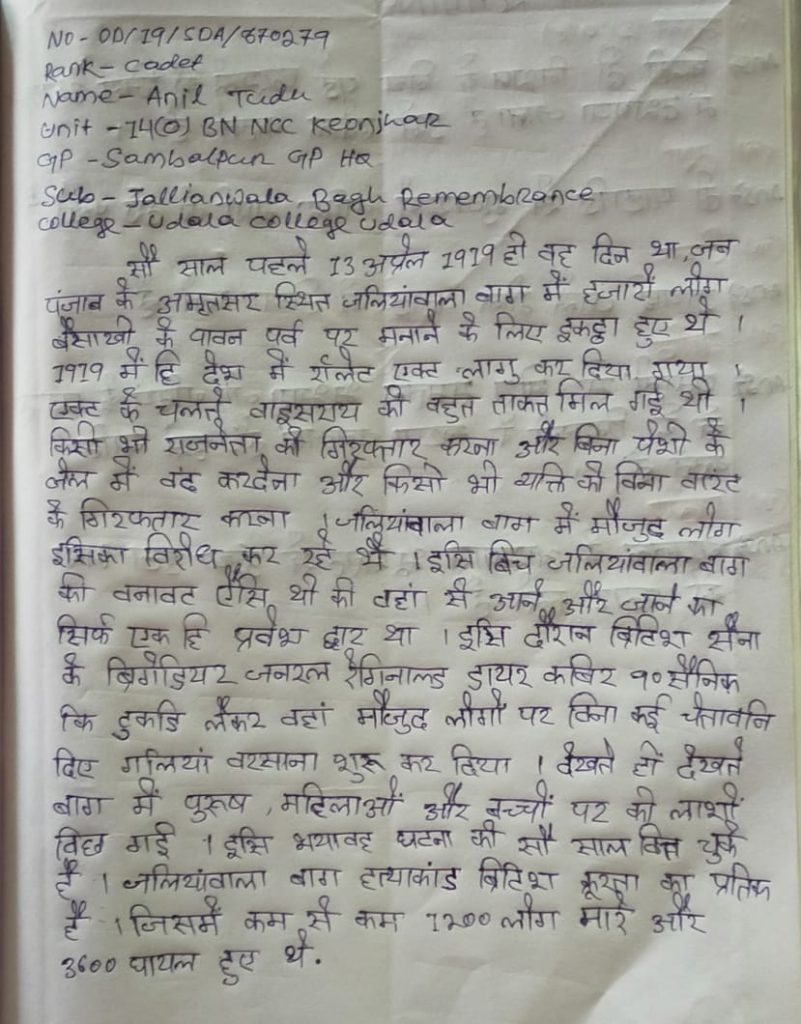 NO - OD/19/SDA/670279
Rank - Cadet
Name - Anil Tudu
Unit - 14(O) BN NCC Keonjhar
GP - Sambalpur GP HQ
Sub - Jallianwala Bagh Remembrance
College - Udala College Udala
सौ साल पहले 13 अप्रेल 1919 ही वह दिन था, जब
पंजाब के अमृतसर स्थित जलियांवाला बाग में हजारों लोग
बैसाखी के पावन पर्व पर मनाने के लिए इकट्ठा हुए थे ।
1919 में हि देश में रॉलेट एक्ट लागु कर दिया गया ।
एक्ट के चलते वाइसराय को बहुत ताकत मिल गई थी ।
किसी भी राजनेता को गिरफ्तार करना और बिना पेशी के
जेल में बंद करदेना और किसी भी व्यक्ति को बिना वारंट
के गिरफतार करना । जलियांवाला बाग में मौजुद लोग
इसिका विरोध कर रहे थे । इसि बिच जलियांवाला बाग
की बनावट ऐसि थी की वहां से आने और जाने का
सिर्फ एक हि प्रवेश द्वार था । इसि दौरान ब्रिटिश सेना
के ब्रिगेडियर जनरल रेगिनाल्ड डायर करिब ९० सैनिक
कि टुकडि लेकर वहां मौजुद लोगों पर बिना कई चेतावनि
दिए गलियां बरसाना शुरू कर दिया । देखते ही देखते
बाग में पुरूष, महिलाओं और बच्चों पर की लाशों
बिछ गई । इसि भयावह घटना को सौ साल बित चुके
है । जलियांवाला बाग हत्याकांड ब्रिटिश क्रूरता का प्रतिक
है । जिसमें कम से कम 1200 लोग मारे और
3600 घायल हुए थे.